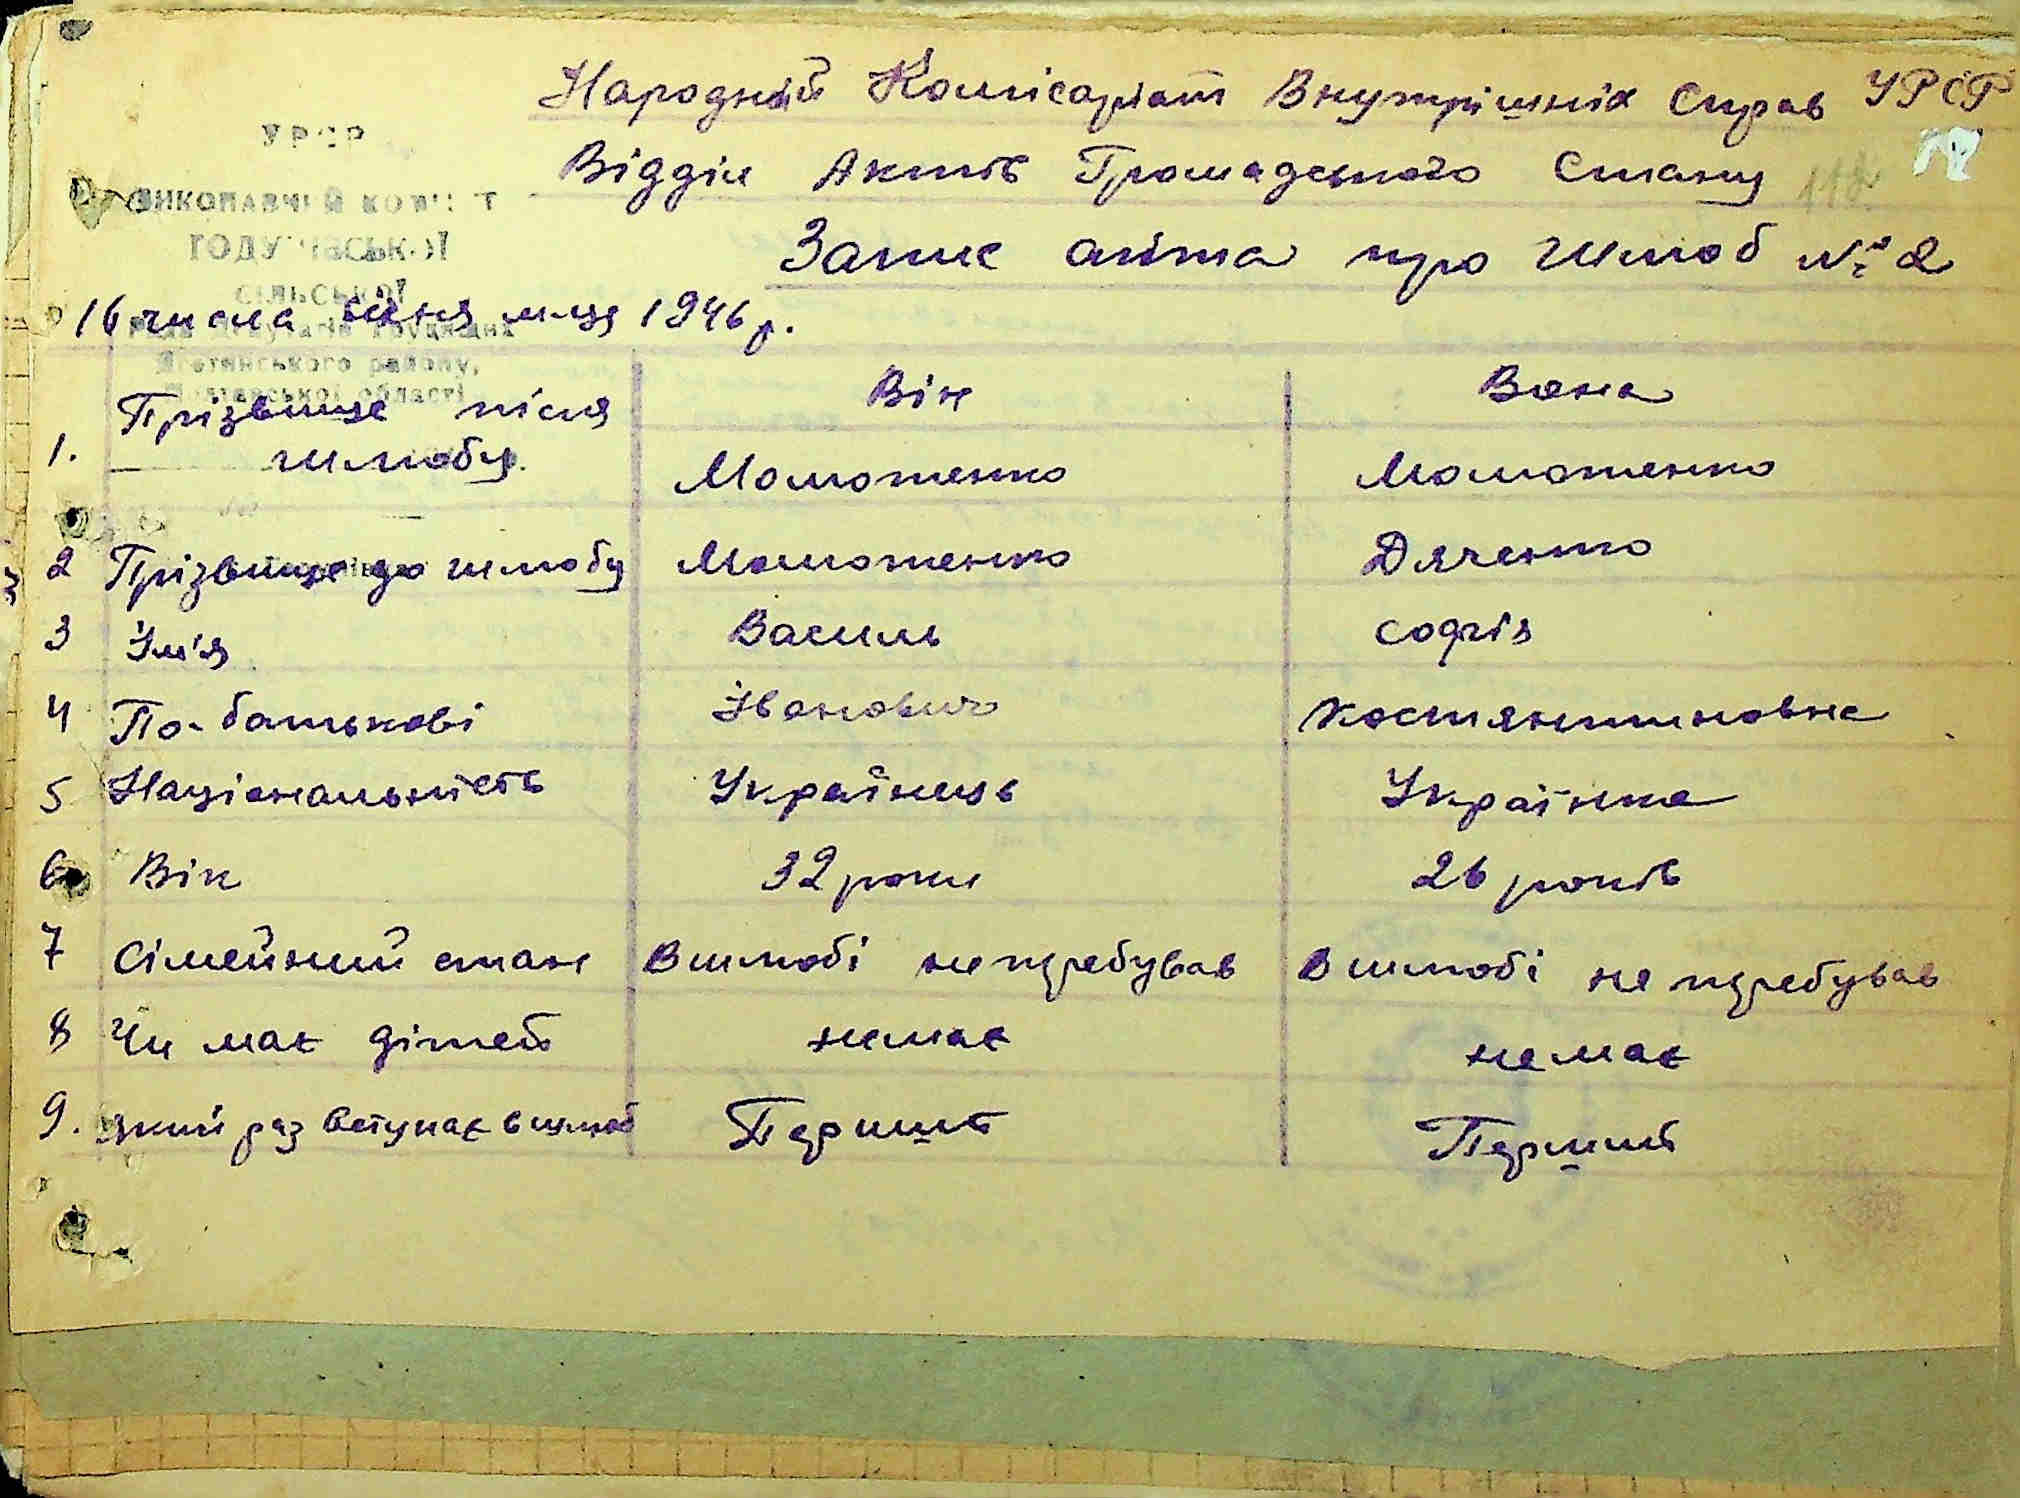 Народній Комісаріат Внутрішніх Справ УРСР
Відділ Актів Громадського Стану 112
Запис акта про шлюб № 2
УРСР
ВИКОНАВЧИЙ КОМІТЕТ
СІЛЬСЬКОЇ
району,
області
16 числа січня м-ця 1946 р.
Він Вона
1. Прізвище після шлюбу. Момотенко Момотенко
2 Прізвище до шлюбу Момотенко Дяченко
3 Ім'я Василь Софія
4 По-батькові Іванович Костянтиновна
5 Національність Українець Українка
6 Вік 32 роки 26 років
7 Сімейний стан В шлюбі не пребував В шлюбі не пребував
8 Чи має дітей немає немає
9. який раз вступає в шлюб Перший Перший